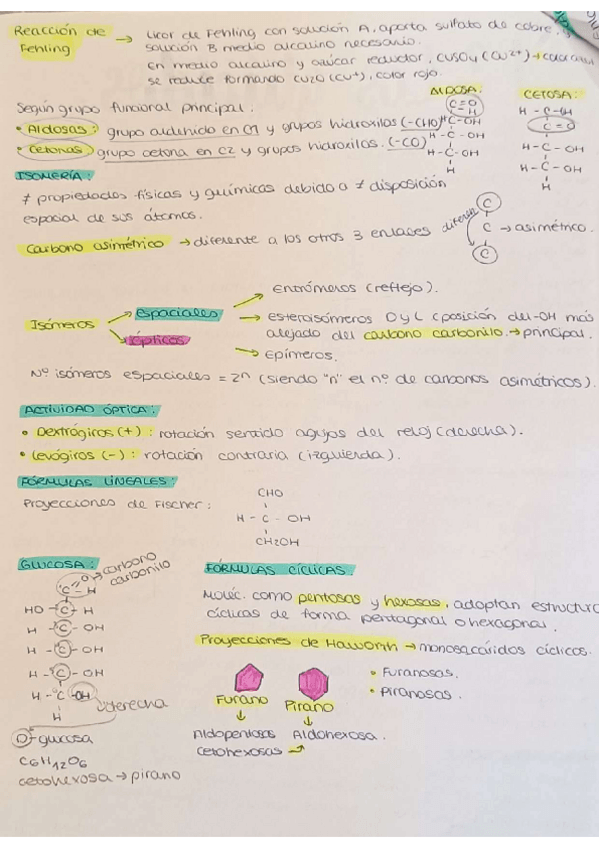 Reacción de Fehling → Licor de Fehling con solución A, aporta sulfato de cobre, y
solución B medio alcalino necesario.
En medio alcalino y azúcar reductor, CuSO4 (Cu2+) → color azul
se reduce formando Cu2O (Cu+), color rojo.
Según grupo funcional principal:
• Aldosas: grupo aldehído en C1 y grupos hidroxilos (-CHO)
• Cetonas: grupo cetona en C2 y grupos hidroxilos. (-CO)
ALDOSA:
C=O
H
H-C-OH
H-C-OH
H-C-OH
H
CETOSA:
H-C-OH
C=O
H-C-OH
H-C-OH
H
ISOMERÍA:
≠ propiedades físicas y químicas debido a ≠ disposición
espacial de sus átomos.
Carbono asimétrico → diferente a los otros 3 enlaces
C
C → asimétrico.
C
Isómeros
Espaciales
Ópticos
Entrómeros (reflejo).
Esteroisómeros D y L (posición del -OH más
alejado del carbono carbonilo. → principal.
Epímeros.
Nº isómeros espaciales = 2n (siendo "n" el nº de carbonos asimétricos).
ACTIVIDAD ÓPTICA:
• Dextrógiros (+): rotación sentido agujas del reloj (derecha).
• Levógiros (-): rotación contraria (izquierda).
FÓRMULAS LINEALES:
Proyecciones de Fischer:
CHO
H - C - OH
CH2OH
GLUCOSA:
carbono
carbonilo
C=O
H
HO - C - H
H - C - OH
H - C - OH
H - C - OH
H - C - OH
H
derecha
D-glucosa
C6H12O6
cetohexosa → pirano
FÓRMULAS CÍCLICAS:
Moléc. como pentosas y hexosas, adoptan estructura
cíclicas de forma pentagonal o hexagonal.
Proyecciones de Haworth → monosacáridos cíclicos.
Furano
Pirano
• Furanosas.
• Piranosas.
Aldopentosas
Cetohexosas
Aldohexosa.